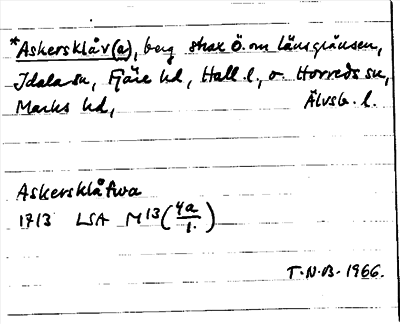 *Askersklåv(a), berg strax Ö. om länsgränsen,
Idala sn, Fjäre hd, Hall. l., o. Horreds sn,
Marks hd, Älvsb. l.
Askersklåfwa
1713 LSA M13 (4a/1.)
T.N.B. 1966.